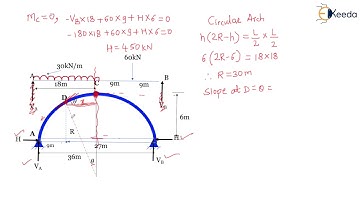 Mc=0, -VB×18+60×9+H×6=0
-180×18+60×9+H×6=0
H=450kN
Circular Arch
h(2R-h)=L/2×L/2
6(2R-6)=18×18
∴ R=30m
Slope at D=θ=
Ekeeda
30kN/m
60kN
A
B
18m
9m
9m
D
6m
R
H
A
H
9m
27m
VA
36m
θ
VB